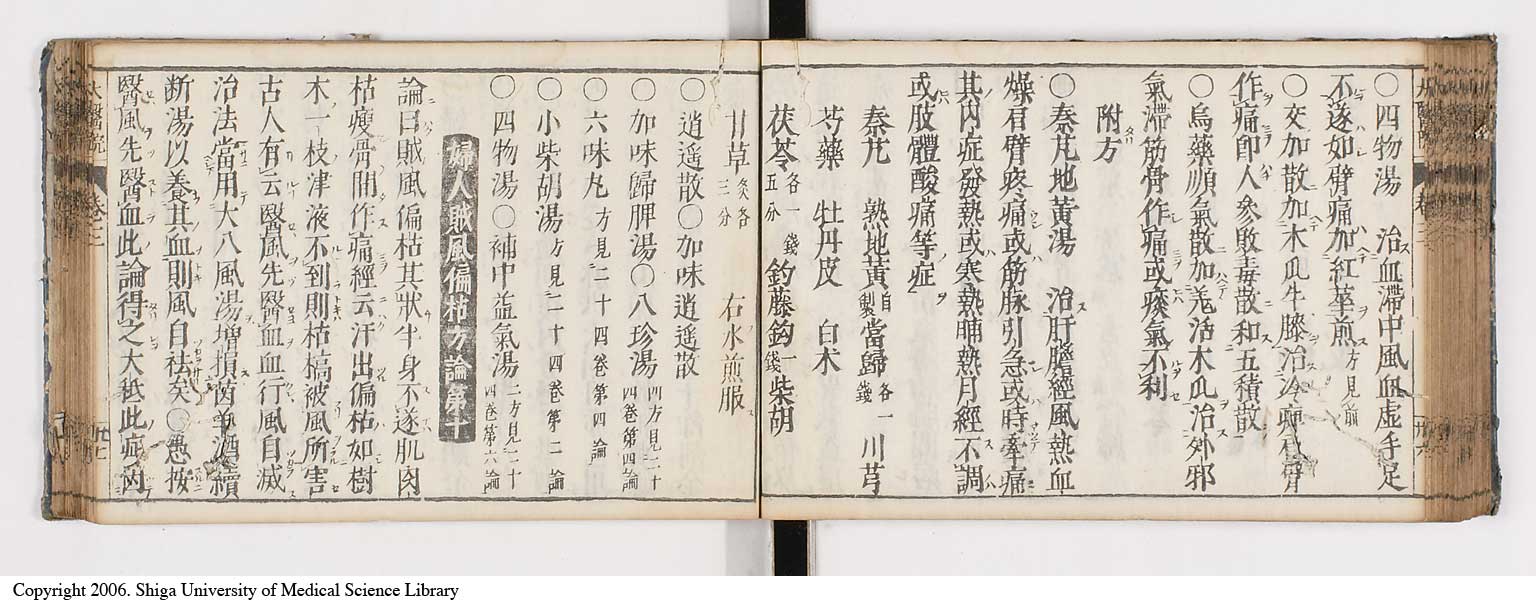 ○四物湯　治血滯中風血虛手足
不遂如臂痛加紅華煎方見前
○交加散加木瓜牛膝治冷
作痛即人參敗毒散和五積散
○烏藥順氣散加羌活木瓜治外邪
氣滯筋骨作痛或痰氣不利
附方
○秦艽地黃湯　治肝膽經風熱血
燥肩臂疼痛或筋脉引急或時牽痛
其内症發熱或寒熱晡熱月經不調
或肢體酸痛等症
秦艽　熟地黃自製當歸各一錢川芎
芍藥　牡丹皮　白朮
茯苓各一錢五分釣藤鈎一錢柴胡
甘草炙各三分　右水煎服
○逍遥散○加味逍遥散
○加味歸脾湯○八珍湯四方見二十四卷第四論
○六味丸方見二十四卷第四論
○小柴胡湯方見二十四卷第二論
○四物湯○補中益氣湯二方見二十四卷第六論
婦人賊風偏枯方論第十
論曰賊風偏枯其狀半身不遂肌肉
枯瘦骨間作痛經云汗出偏枯如樹
木一枝津液不到則枯槁被風所害
古人有云醫風先醫血血行風自滅
治法當用大八風湯增損茵芋酒續
断湯以養其血則風自祛矣○愚按
醫風先醫血此論得之大抵此症内
Copyright 2006. Shiga University of Medical Science Library